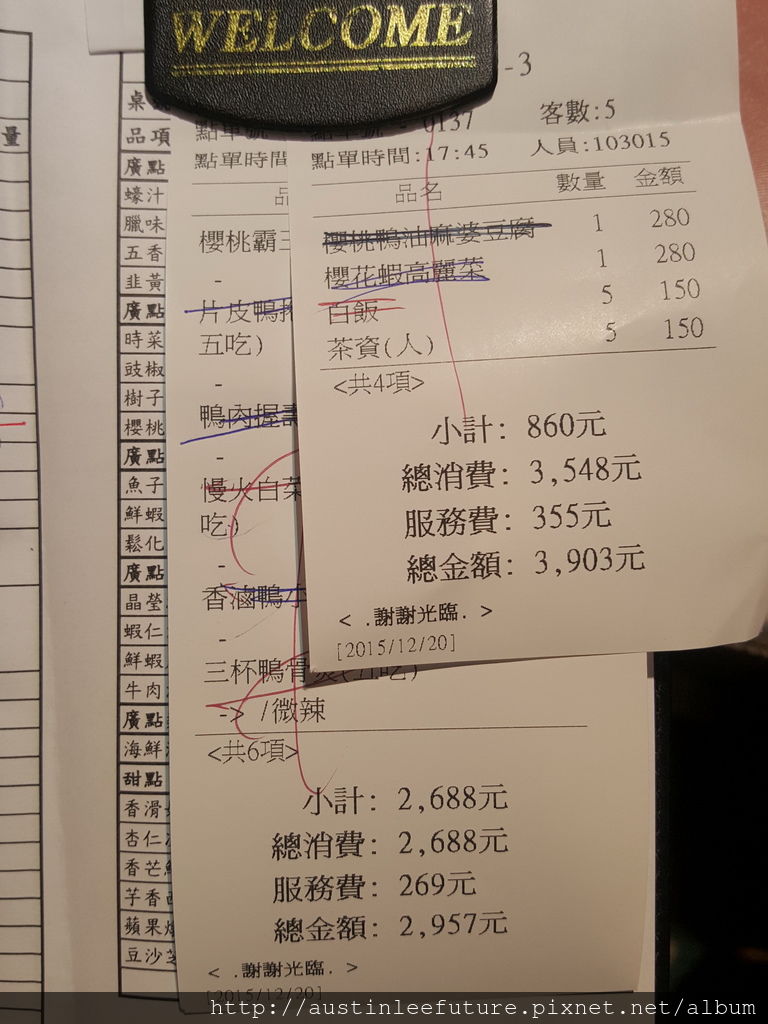 WELCOME
-3
0137
客數:5
點單時間:17:45
人員:103015
品名 數量 金額
櫻桃鴨油麻婆豆腐 1 280
櫻花蝦高麗菜 1 280
白飯 5 150
茶資(人) 5 150
<共4項>
小計: 860元
總消費: 3,548元
服務費: 355元
總金額: 3,903元
< .謝謝光臨. >
[2015/12/20]
點單時間
櫻桃霸王
-
片皮鴨
五吃)
-
鴨肉握壽
-
慢火白菜
吃)
-
香滷鴨
-
三杯鴨骨
-> /微辣
<共6項>
小計: 2,688元
總消費: 2,688元
服務費: 269元
總金額: 2,957元
< .謝謝光臨. >
[2015/12/20]
量
桌
品項
廣點
蠔汁
臘味
五香
韭黃
廣點
時菜
豉椒
樹子
櫻桃
廣點
魚子
鮮蝦
鬆化
廣點
晶瑩
蝦仁
鮮蝦
牛肉
廣點
海鮮
甜點
香滑
杏仁
香芒
芋香
蘋果
豆沙
http://austinleefuture.pixnet.net/album